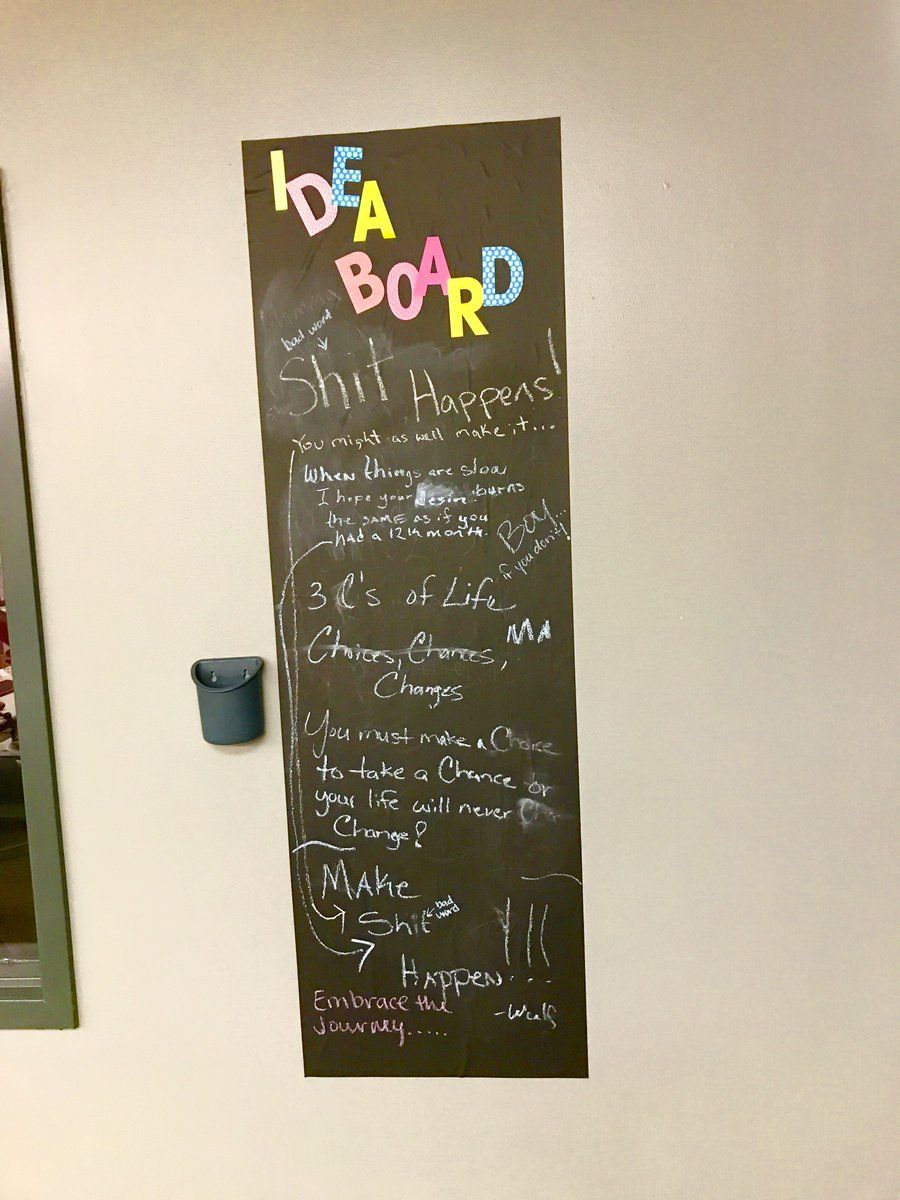 IDEA
BOARD
Mamma
bad word
Shit Happens!
You might as well make it...
When things are slow
I hope your desire burns
the SAME as if you
had a 12k month.
Boy...
if you don't!
3 C's of Life
MA
Choices, Chances,
Changes
You must make a Choice
to take a Chance or
your life will never
Change!
MAke
Shit
bad
word
HAPPEN...
Embrace the
Journey.....